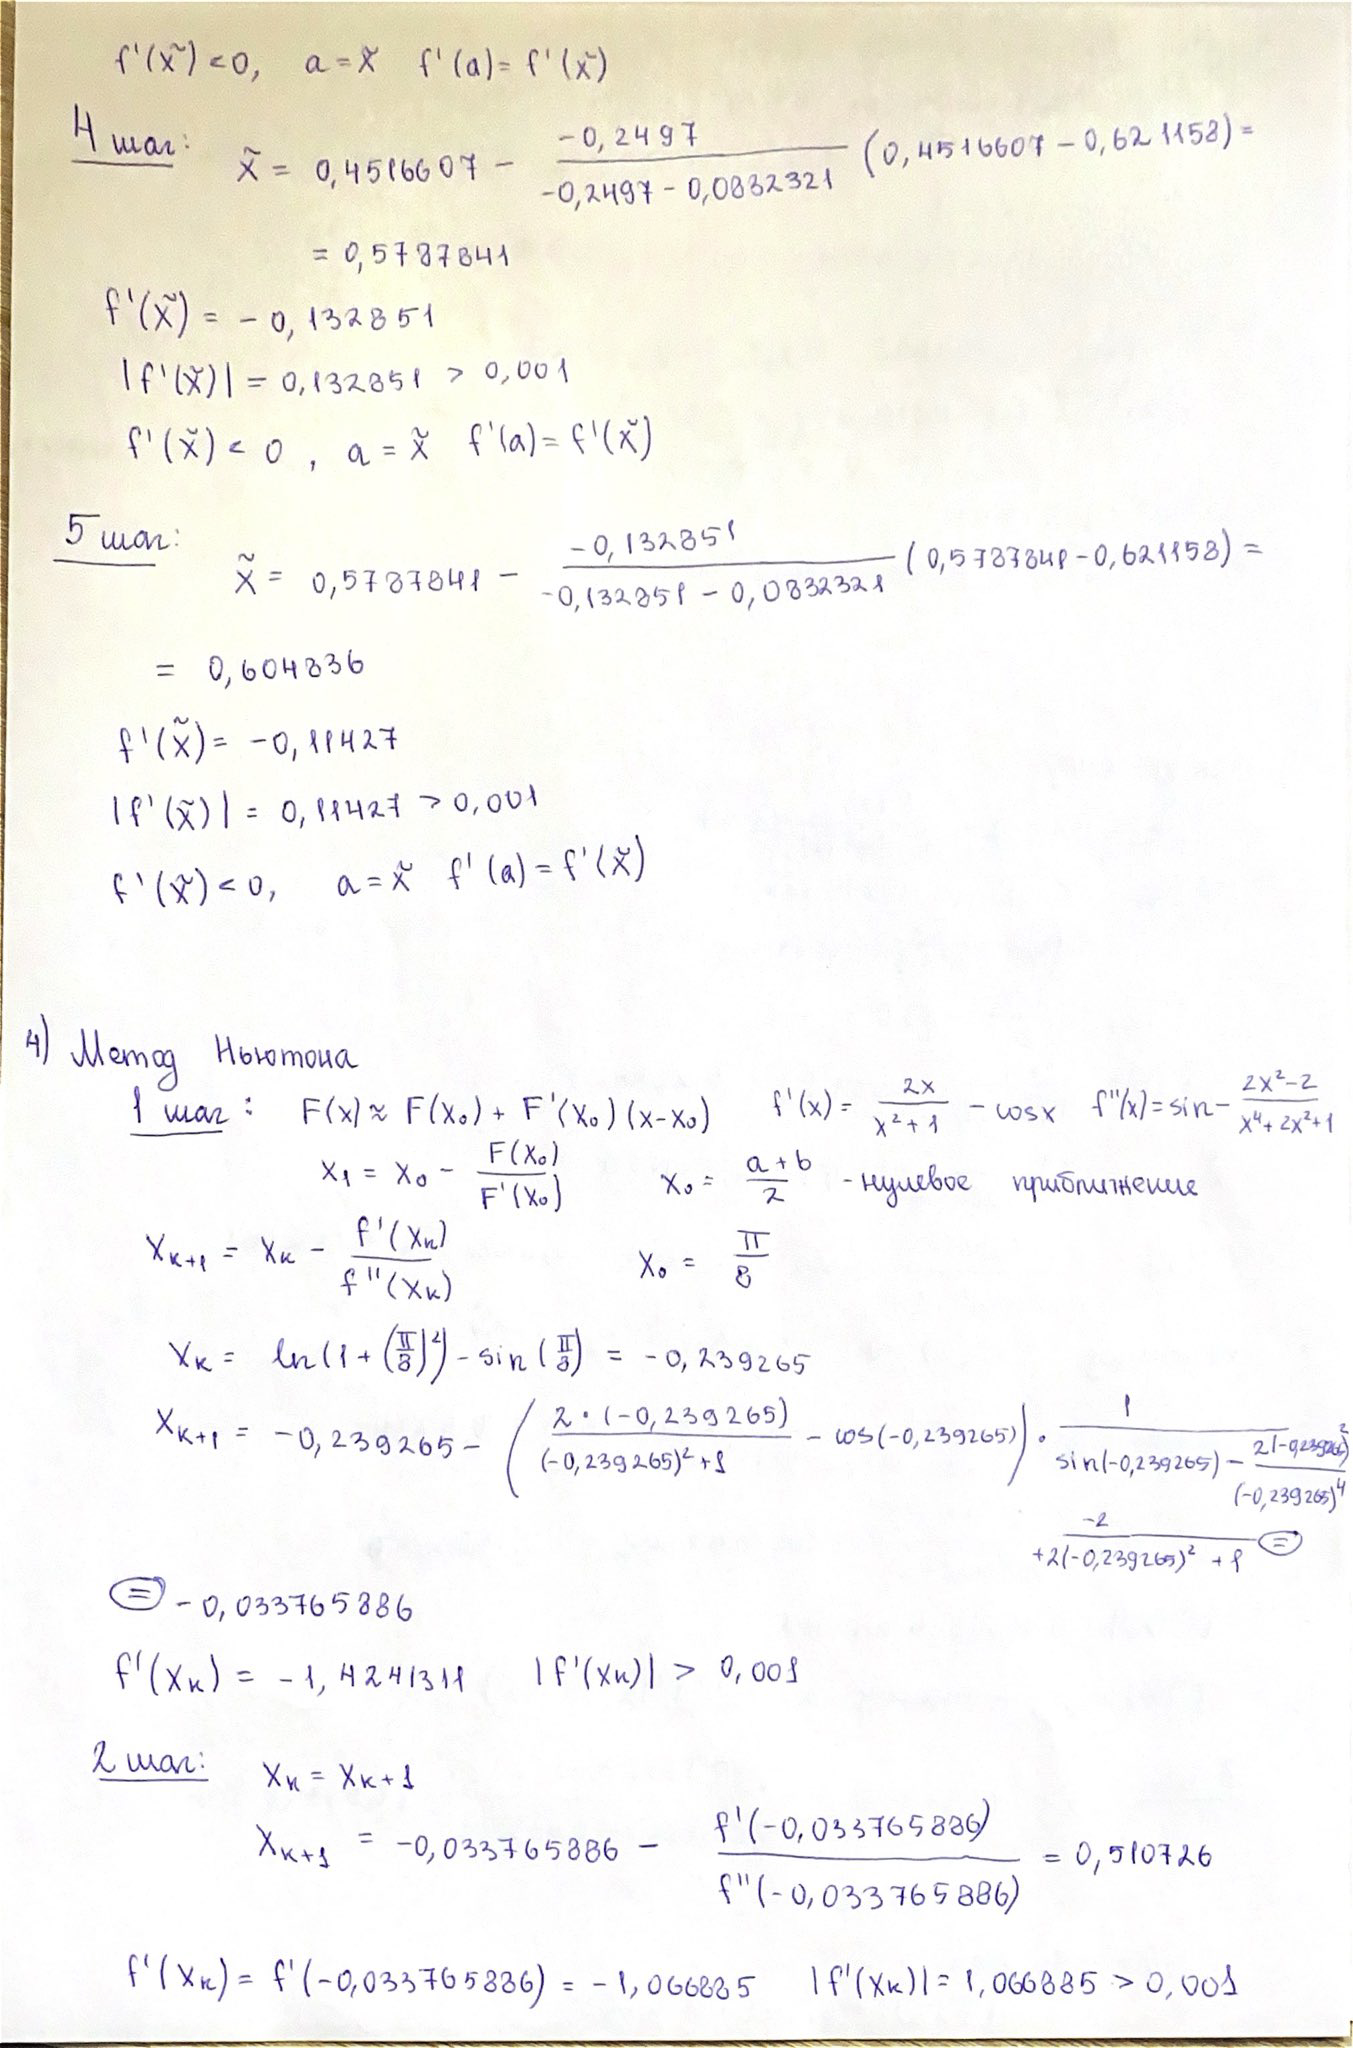 f'(x̃) < 0, a = x̃ f'(a) = f'(x̃)
4 шаг: x̃ = 0,4516607 - (-0,2497)/(-0,2497 - 0,0832321) (0,4516607 - 0,621158) =
= 0,5787841
f'(x̃) = -0,132851
|f'(x̃)| = 0,132851 > 0,001
f'(x̃) < 0, a = x̃ f'(a) = f'(x̃)
5 шаг: x̃ = 0,5787841 - (-0,132851)/(-0,132851 - 0,0832321) (0,5787841 - 0,621158) =
= 0,604836
f'(x̃) = -0,11427
|f'(x̃)| = 0,11427 > 0,001
f'(x̃) < 0, a = x̃ f'(a) = f'(x̃)
4) Метод Ньютона
1 шаг: F(x) ≈ F(x₀) + F'(x₀)(x-x₀) f'(x) = 2x/(x²+1) - cosx f''(x) = sin - (2x²-2)/(x⁴+2x²+1)
x₁ = x₀ - F(x₀)/F'(x₀) x₀ = (a+b)/2 - нулевое приближение
xₖ₊₁ = xₖ - f'(xₖ)/f''(xₖ) x₀ = π/8
xₖ = ln(1+(π/8)²) - sin(π/8) = -0,239265
xₖ₊₁ = -0,239265 - (2·(-0,239265)/((-0,239265)²+1) - cos(-0,239265)) · 1/(sin(-0,239265) - (2(-0,239265)² -2)/((-0,239265)⁴ +2(-0,239265)² +1)) =
= -0,033765886
f'(xₖ) = -1,4241311 |f'(xₖ)| > 0,001
2 шаг: xₖ = xₖ₊₁
xₖ₊₁ = -0,033765886 - f'(-0,033765886)/f''(-0,033765886) = 0,510726
f'(xₖ) = f'(-0,033765886) = -1,066885 |f'(xₖ)| = 1,066885 > 0,001